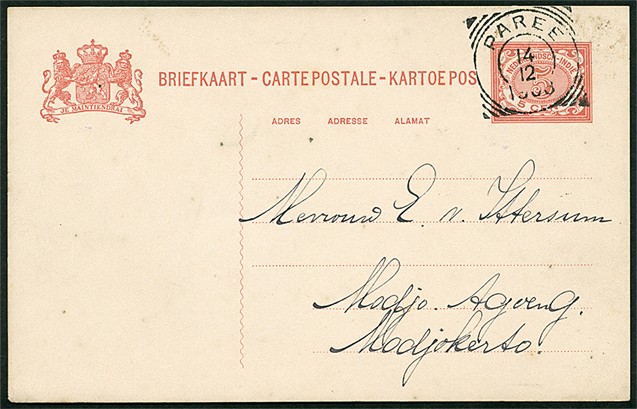 PAREE
14
12
1908
NEDERLANDSCH-INDIE
5 C
JE MAINTIENDRAI
BRIEFKAART - CARTE POSTALE - KARTOE POS
ADRES ADRESSE ALAMAT
Mevrouw E. v. Ittersum
Modjo. Agoeng.
Modjokerto.